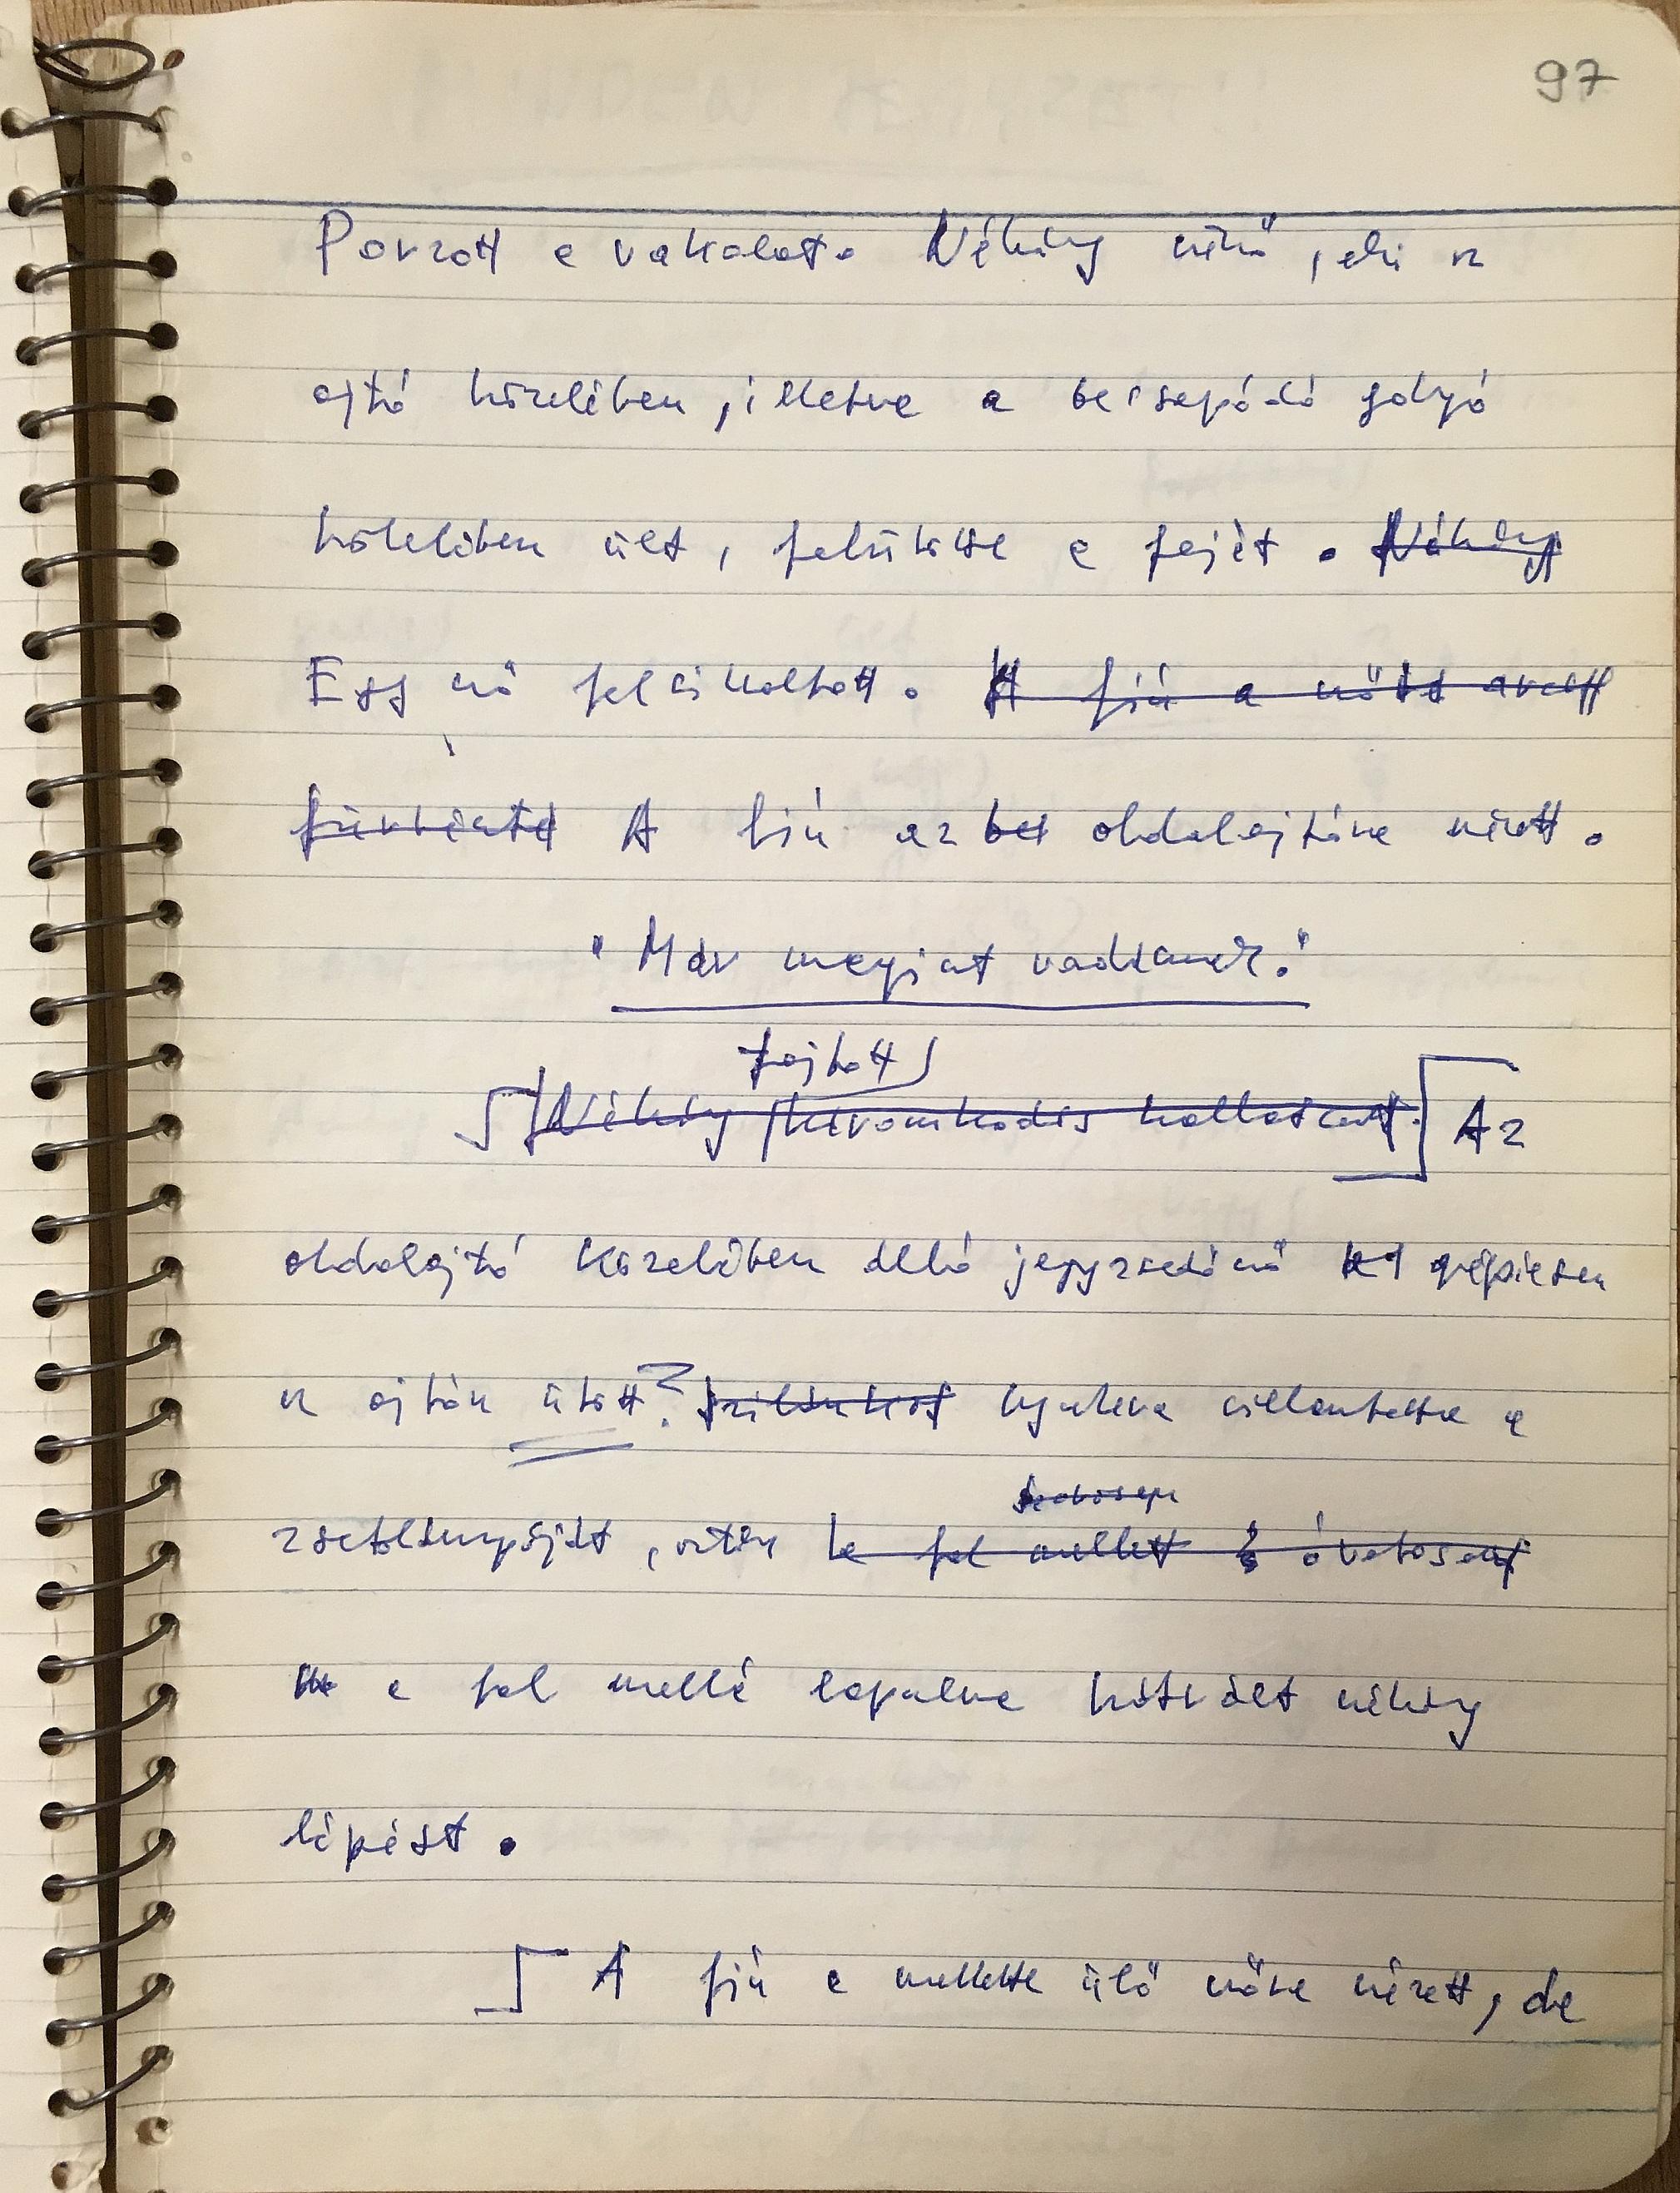 97
Porzott a vakolat. Néhány néző, aki az
ajtó közelében, illetve a becsapódó golyó
közelében ült, felütötte a fejét. Néhány
Egy nő felsikoltott. A fiú a nőt
A fiú az oldalajtóra nézett.
"Már megint vadsamer."
fojtott
Néhány káromkodás hallatszott. Az
oldalajtó közelében álló jegyszedőnő gépiesen
az ajtón újra villantotta a
zseblámpáját, aztán le fal mellett óvatosan
a fal mellé lapulva hátrált néhány
lépést.
A fiú a mellette ülő nőre nézett, de